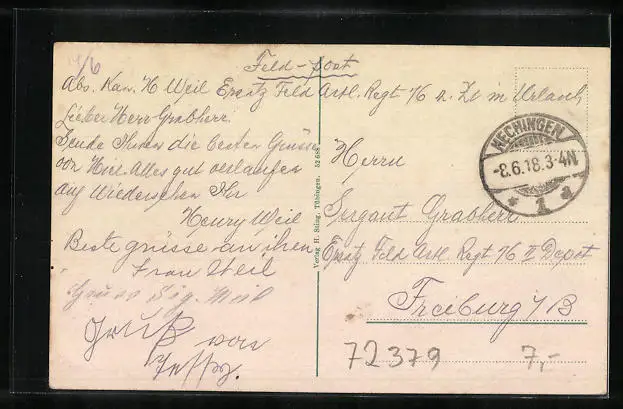 7/6
Feld-post
Abs. Kan. H Weil Ersatz Feld Artl. Regt 76 z. Zt in Urlaub
Lieber Herr Grabherr.
Sende Ihnen die besten Grüsse
von Hier. Alles gut verlaufen
auf Wiedersehen Ihr
Henry Weil
Beste grüsse an ihren
Frau Weil
Gruss Sig. Weil
Gruß von
Verlag H. Sting, Tübingen. 52688
HECHINGEN
-8.6.18.3-4N
* 1 a
Herrn
Sergant Grabherr
Ersatz Feld Artl. Regt 76 II Depot
Freiburg i/B
72379
7,-